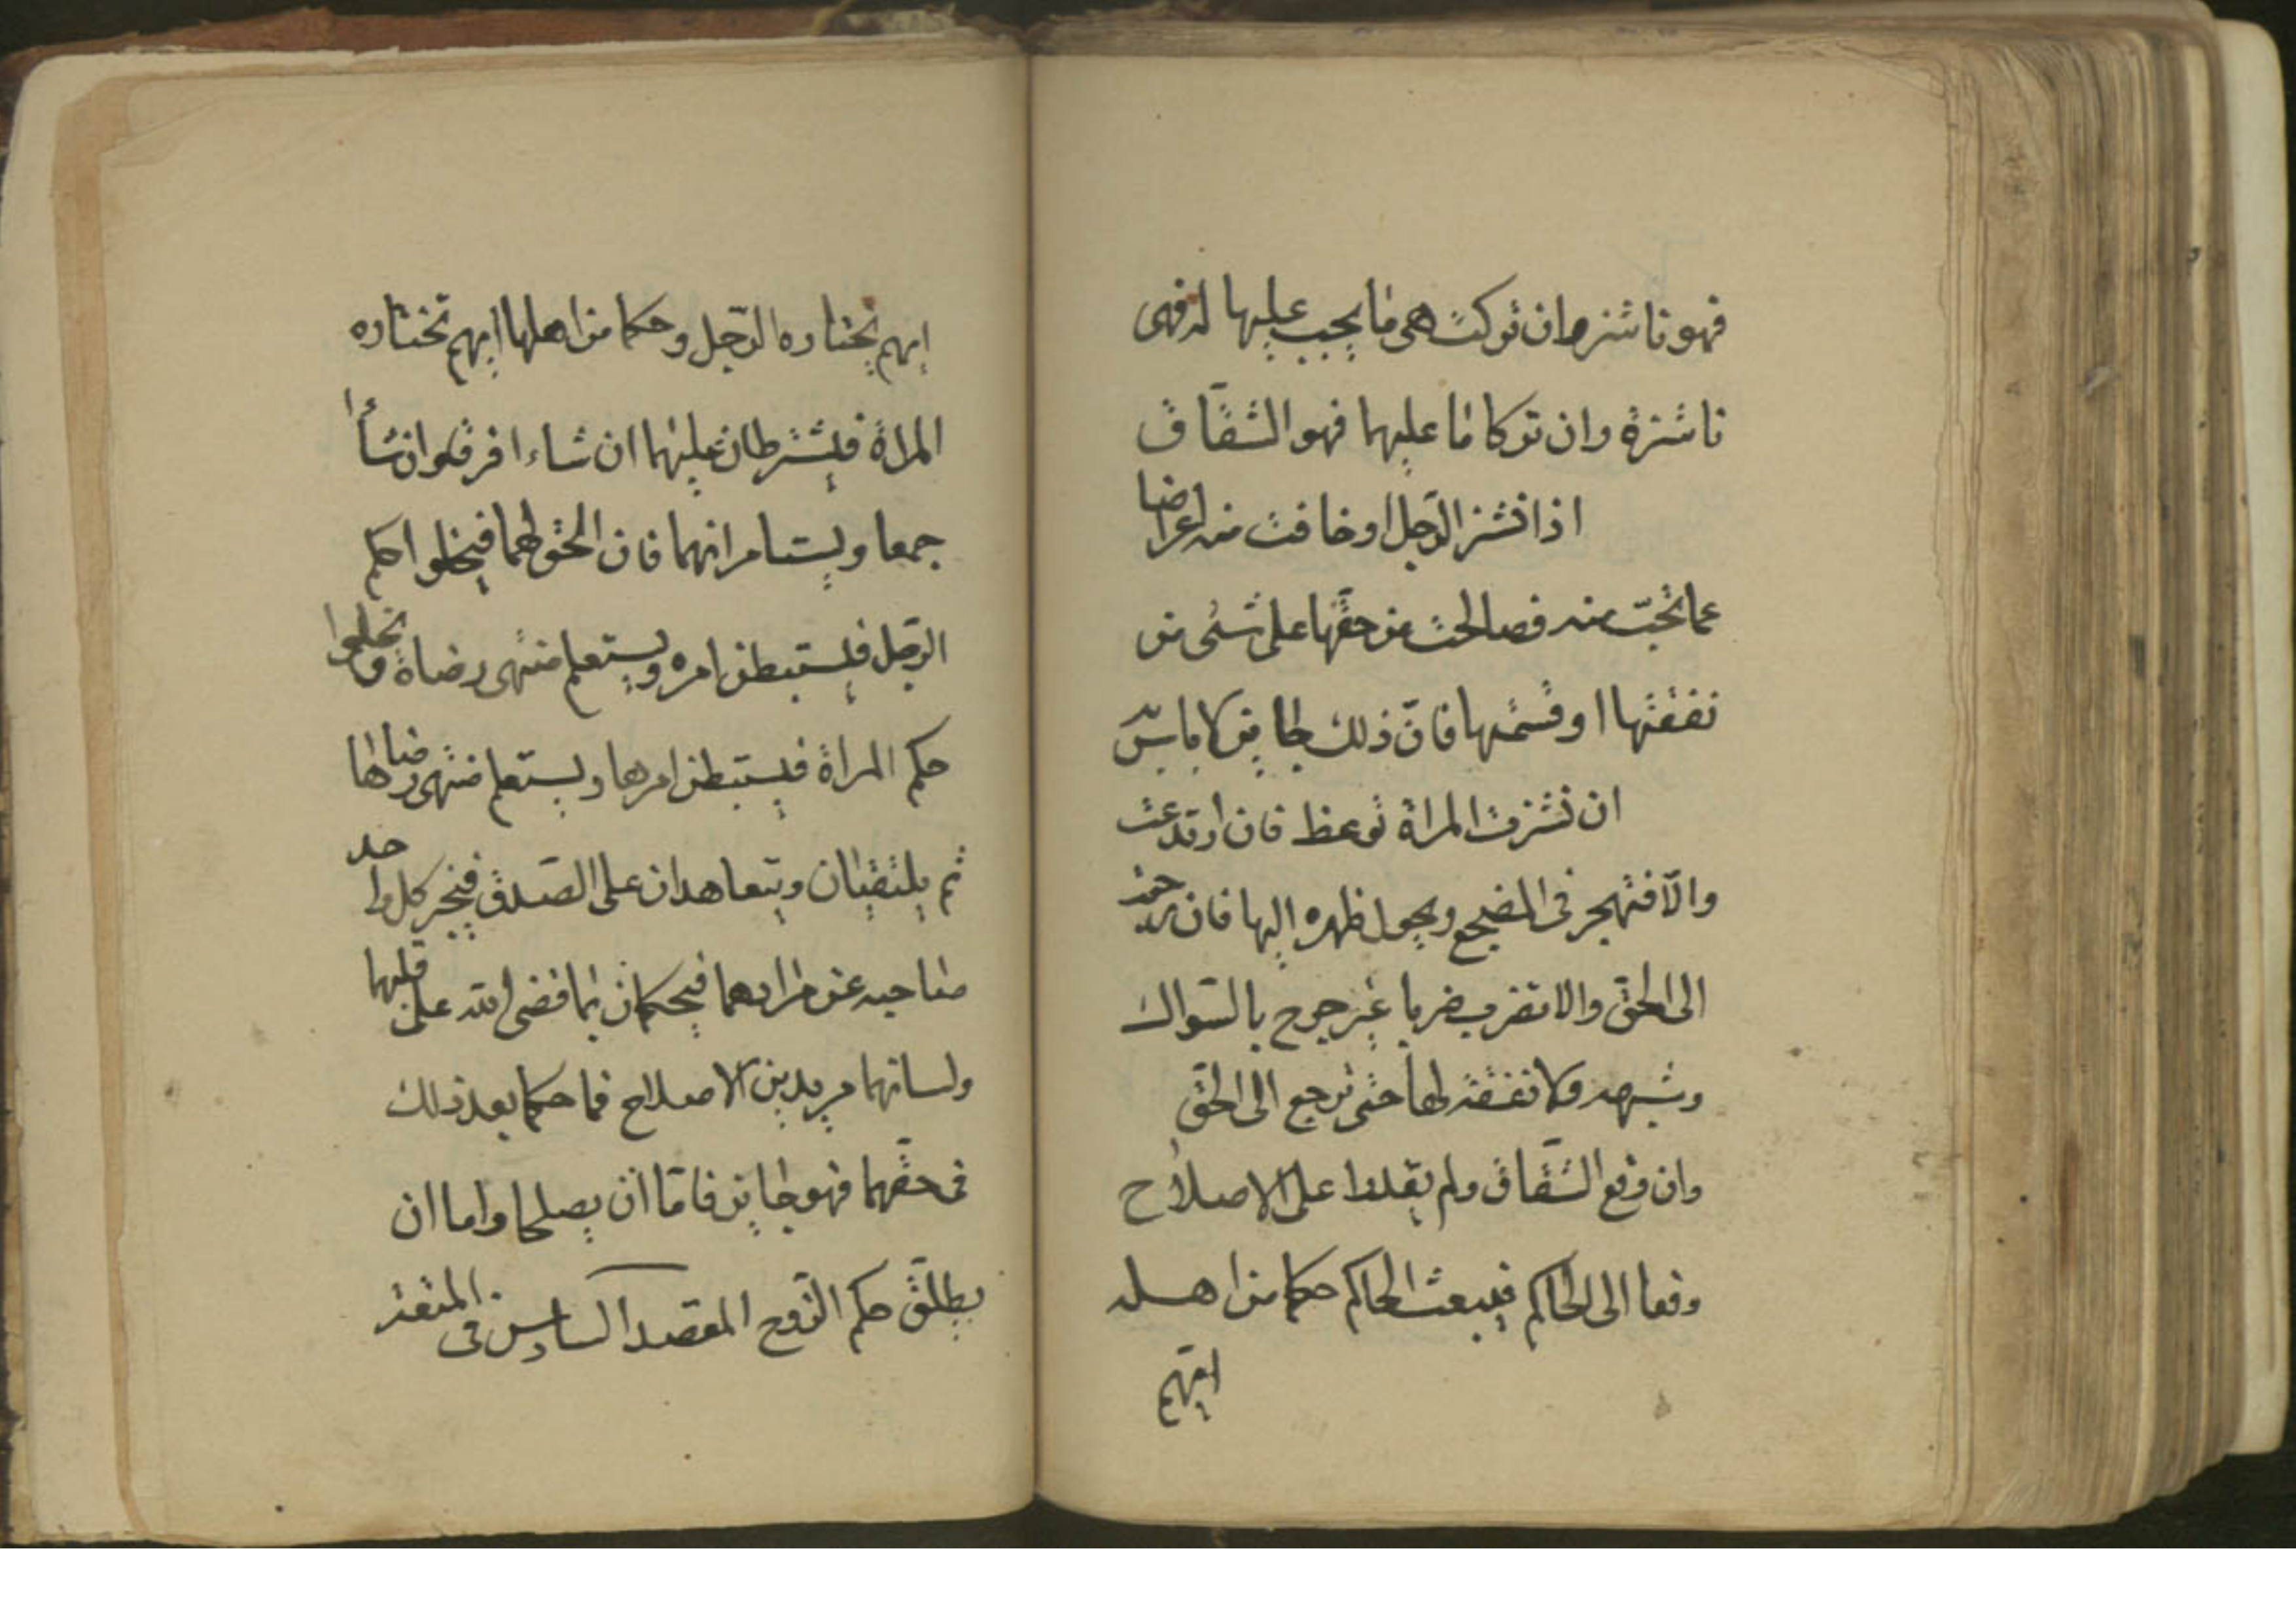 فهو ناشز وان تركت هی ما يجب عليها له فهی
ناشزة وان تركا ما عليهما فهو الشقاق
اذا نشز الرّجل او خافت منه اعراضا
عما تحبّ منه فصالحت من حقّها علی شیء من
نفقتها او قسمتها فانّ ذلك جايز لا باس به
ان نشزت المراة توعظ فان ارتدعت
والّا فتهجر فی المضجع ويحول ظهره اليها فان
الی الحقّ والا تضرب ضربا غير جرح بالسّواك
وشبهه ولا نفقة لها حتی ترجع الی الحقّ
وان وقع الشّقاق ولم يقدرا علی الاصلاح
رفعا الی الحاكم فيبعث الحاكم حكما من اهله
ايّهم
ايهم يختاره الرّجل وحكما من اهلها ايهم تختاره
المراة فيشترطان عليهما ان شاءا فرقوا وان شاءا
جمعا ويستامرانهما فان الحق لهما فيخلوا حكم
الرّجل فليستبطن امره ويستعلم منتهی رضاه ويخلوا
حكم المراة فيستبطن امرها ويستعلم منتهی رضاها
ثم يلتقيان ويتعاهدان علی الصّدق فيخبر كل واحد
صاحبه عن مرادهما فيحكمان بما قضی الله علی قلبهما
ولسانهما مريدين الاصلاح فما حكما بعد ذلك
فی حقّهما فهو جايز فامّا ان يصلحا واما ان
يطلّق حكم الزّوج المقصد السادس فی المتعة